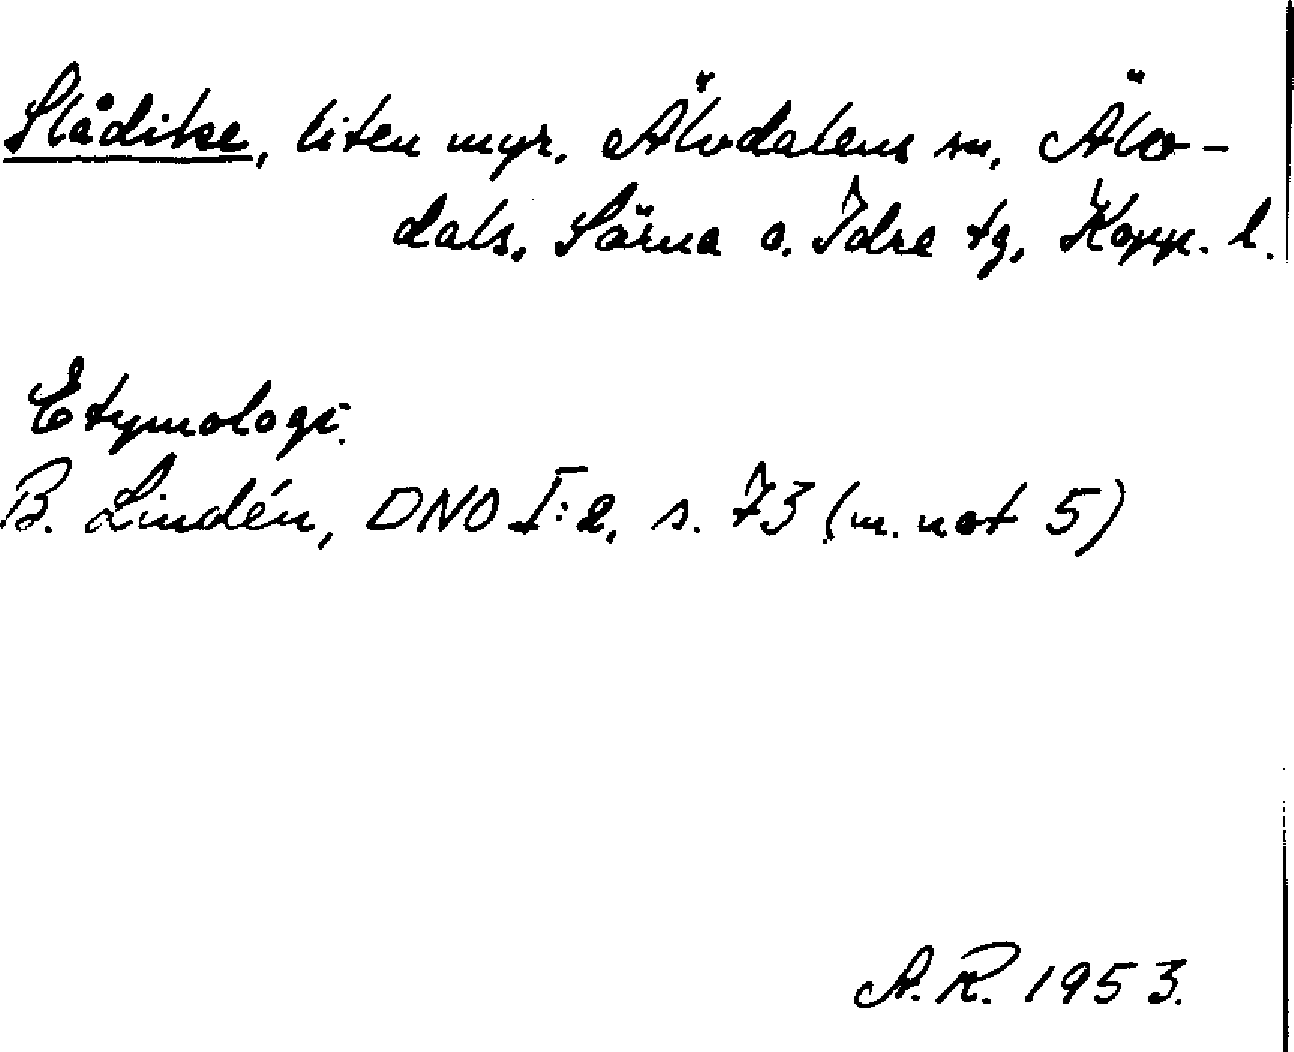 Slådike, liten myr. Älvdalens sn, Älv-
dals, Särna o. Idre tg, Kopp. l.
Etymologi.
B. Lindén, DNO I:2, s. 73 (m. not 5)
A.R. 1953.